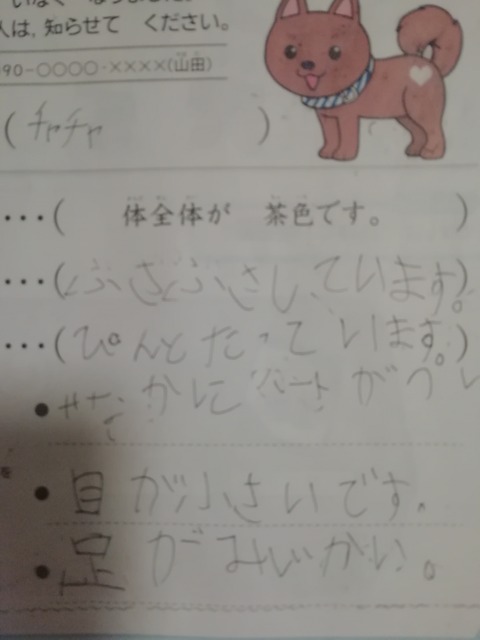 いなく なりました。
人は、知らせて ください。
090-○○○○-××××(山田)
(チャチャ)
…( 体全体が 茶色です。 )
…(ふさふさしています。)
…(ぴんとたっています。)
● せなかにハートがつい
を
● 目が小さいです。
● 足がみじかい。